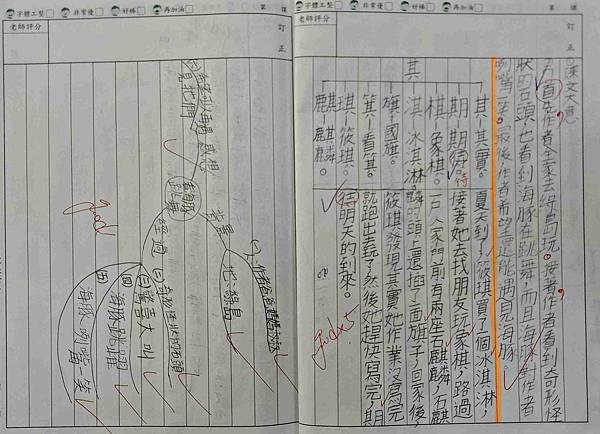 字體工整 非常優 好棒 再加油 第 課
訂正
老師評分
課文大意
首先作者全家去綠島玩。接著作者看到奇形怪
狀的石頭,也看到海豚在跳舞,而且海豚對作者
咧嘴一笑。最後作者希望還能遇見海豚。
其-其實。
期-期待。
棋-象棋。
淇-冰淇淋。
旗-國旗。
箕-看箕。
琪-筱琪。
麒-麒麟。
其
夏天到了,筱琪買了一個冰淇淋,
接著她去找朋友玩象棋,路過
一戶人家門前有兩坐石麒麟,石麒
麟的頭上還插了面旗子,回家後,
筱琪發現其實她作業沒寫完,
就跑出去玩了,然後她趕快寫完,期
待明天的到來。
Good x5
字體工整 非常優 好棒 再加油 第 課
訂正
老師評分
希望可以再遇見牠們
感想
海豚跳舞
背景
地:綠島
經過
奇形怪狀的石頭
驚言大叫
海豚跳躍
海豚咧嘴一笑
good